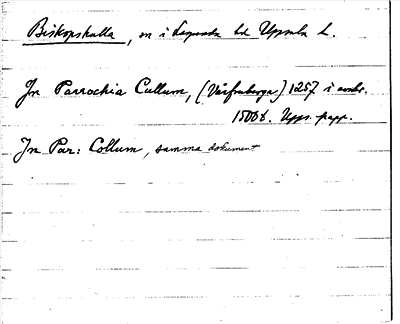 Biskopskulla, sn i Lagunda hd Uppsala l.
In Parrochia Cullum, (Värfruberga) 1257 i avskr.
1500 t. Upps. papp.
In Par: Collum, samma dokument